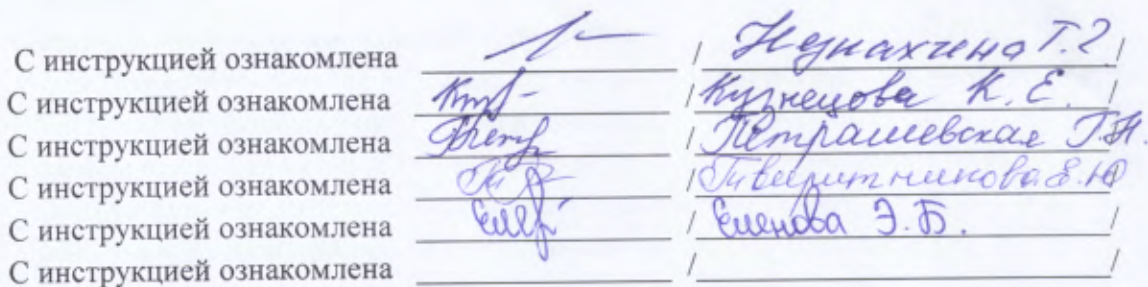 С инструкцией ознакомлена / Незнахина Т.Г.
С инструкцией ознакомлена / Кузнецова К. Е. /
С инструкцией ознакомлена / Петрашевская Г.Н.
С инструкцией ознакомлена / Е.Ю
С инструкцией ознакомлена / Еленова Э.Б. /
С инструкцией ознакомлена / /